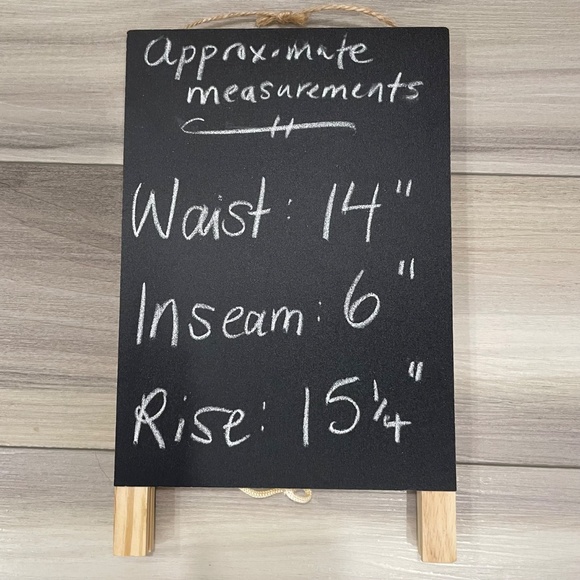 Approximate
measurements
Waist: 14"
Inseam: 6"
Rise: 15 1/4"